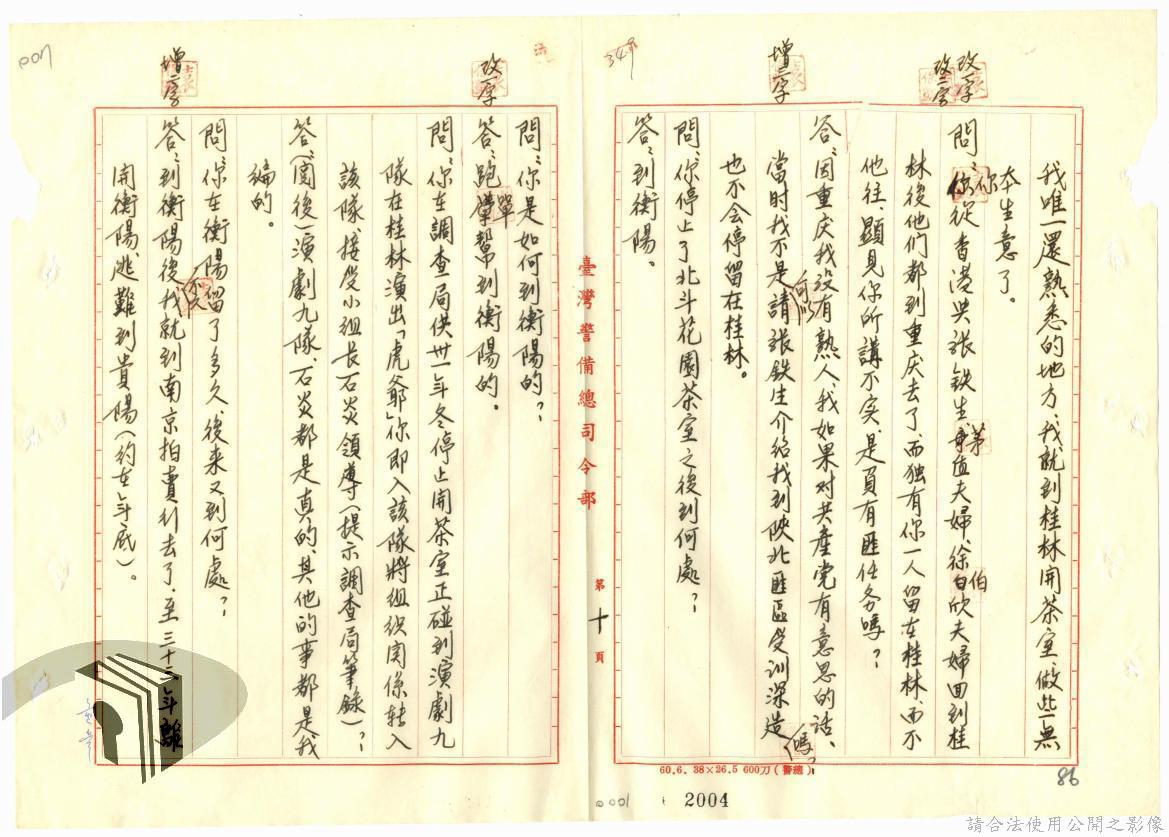 我唯一還熟悉的地方、我就到桂林開茶室、做些無
本生意了。
問：你從香港與張鉄生茅值夫婦、徐伯欣夫婦回到桂
林後他們都到重庆去了、而独有你一人留在桂林、而不
他往、顯見你所講不实、是負有匪任务嗎？
答：因重庆我没有熟人、我如果对共產党有意思的話、
當时我何以不是請張鉄生介绍我到陝北匪區受训深造嗎？
也不会停留在桂林。
問：你停止了北斗花園茶室之後到何處？
答：到衡陽。
臺灣警備總司令部
第十頁
問：你是如何到衡陽的？
答：跑單幫到衡陽的。
問：你在調查局供卅一年冬停止開茶室正碰到演劇九
隊在桂林演出「虎爺」你即入該隊將组织関係转入
該隊、接受小组長石炎領導（提示調查局筆錄）？
答：（閱後）演劇九隊、石炎都是真的、其他的事都是我
编的。
問：你在衡陽停留了多久、後来又到何處？
答：到衡陽後我就到南京拍賣行去了．至三十三年離
開衡陽逃難到貴陽（约在年底）。
增二字
改一字
改一字
改二字
增二字
349
P001
60.6. 38×26.5 600刀（警總）
P001
2004
86
請合法使用公開之影像